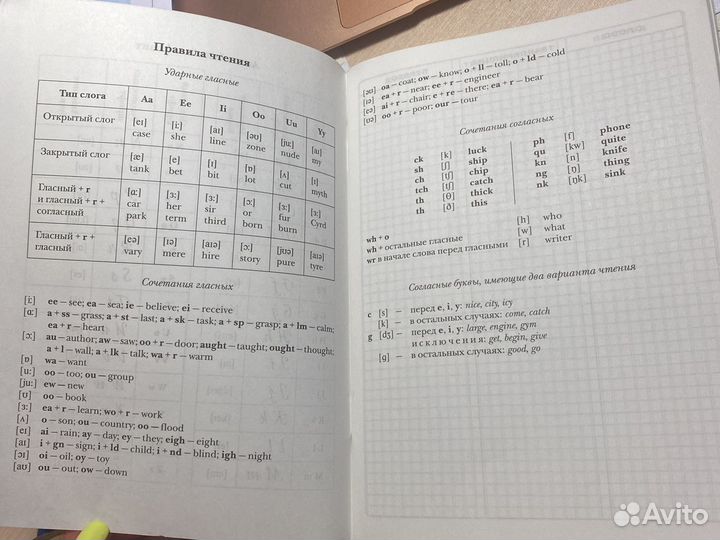 Правила чтения
Ударные гласные
Тип слога Aa Ee Ii Oo Uu Yy
Открытый слог [eɪ] case [i:] she [aɪ] line [əʊ] zone [ju:] nude [aɪ] my
Закрытый слог [æ] tank [e] bet [ɪ] bit [ɒ] lot [ʌ] cut [ɪ] myth
Гласный + r и гласный + r + согласный [ɑ:] car park [ɜ:] her term [ɜ:] sir third [ɔ:] or born [ɜ:] fur burn [ɜ:] Cyrd
Гласный + r + гласный [eə] vary [ɪə] mere [aɪə] hire [ɔ:] story [jʊə] pure [aɪə] tyre
Сочетания гласных
[i:] ee – see; ea – sea; ie – believe; ei – receive
[ɑ:] a + ss – grass; a + st – last; a + sk – task; a + sp – grasp; a + lm – calm;
ea + r – heart
[ɔ:] au – author; aw – saw; oo + r – door; aught – taught; ought – thought;
a + l – wall; a + lk – talk; wa + r – warm
[ɒ] wa – want
[u:] oo – too; ou – group
[ju:] ew – new
[ʊ] oo – book
[ɜ:] ea + r – learn; wo + r – work
[ʌ] o – son; ou – country; oo – flood
[eɪ] ai – rain; ay – day; ey – they; eigh – eight
[aɪ] i + gn – sign; i + ld – child; i + nd – blind; igh – night
[ɔɪ] oi – oil; oy – toy
[aʊ] ou – out; ow – down
[əʊ] oa – coat; ow – know; o + ll – toll; o + ld – cold
[ɪə] ea + r – near; ee + r – engineer
[eə] ai + r – chair; e + re – there; ea + r – bear
[ʊə] oo + r – poor; our – tour
Сочетания согласных
ck [k] luck
sh [ʃ] ship
ch [tʃ] chip
tch [tʃ] catch
th [θ] thick
th [ð] this
ph [f] phone
qu [kw] quite
kn [n] knife
ng [ŋ] thing
nk [ŋk] sink
wh + o [h] who
wh + остальные гласные [w] what
wr в начале слова перед гласными [r] writer
Согласные буквы, имеющие два варианта чтения
c [s] – перед e, i, y: nice, city, icy
[k] – в остальных случаях: come, catch
g [dʒ] – перед e, i, y: large, engine, gym
исключения: get, begin, give
[g] – в остальных случаях: good, go
Avito